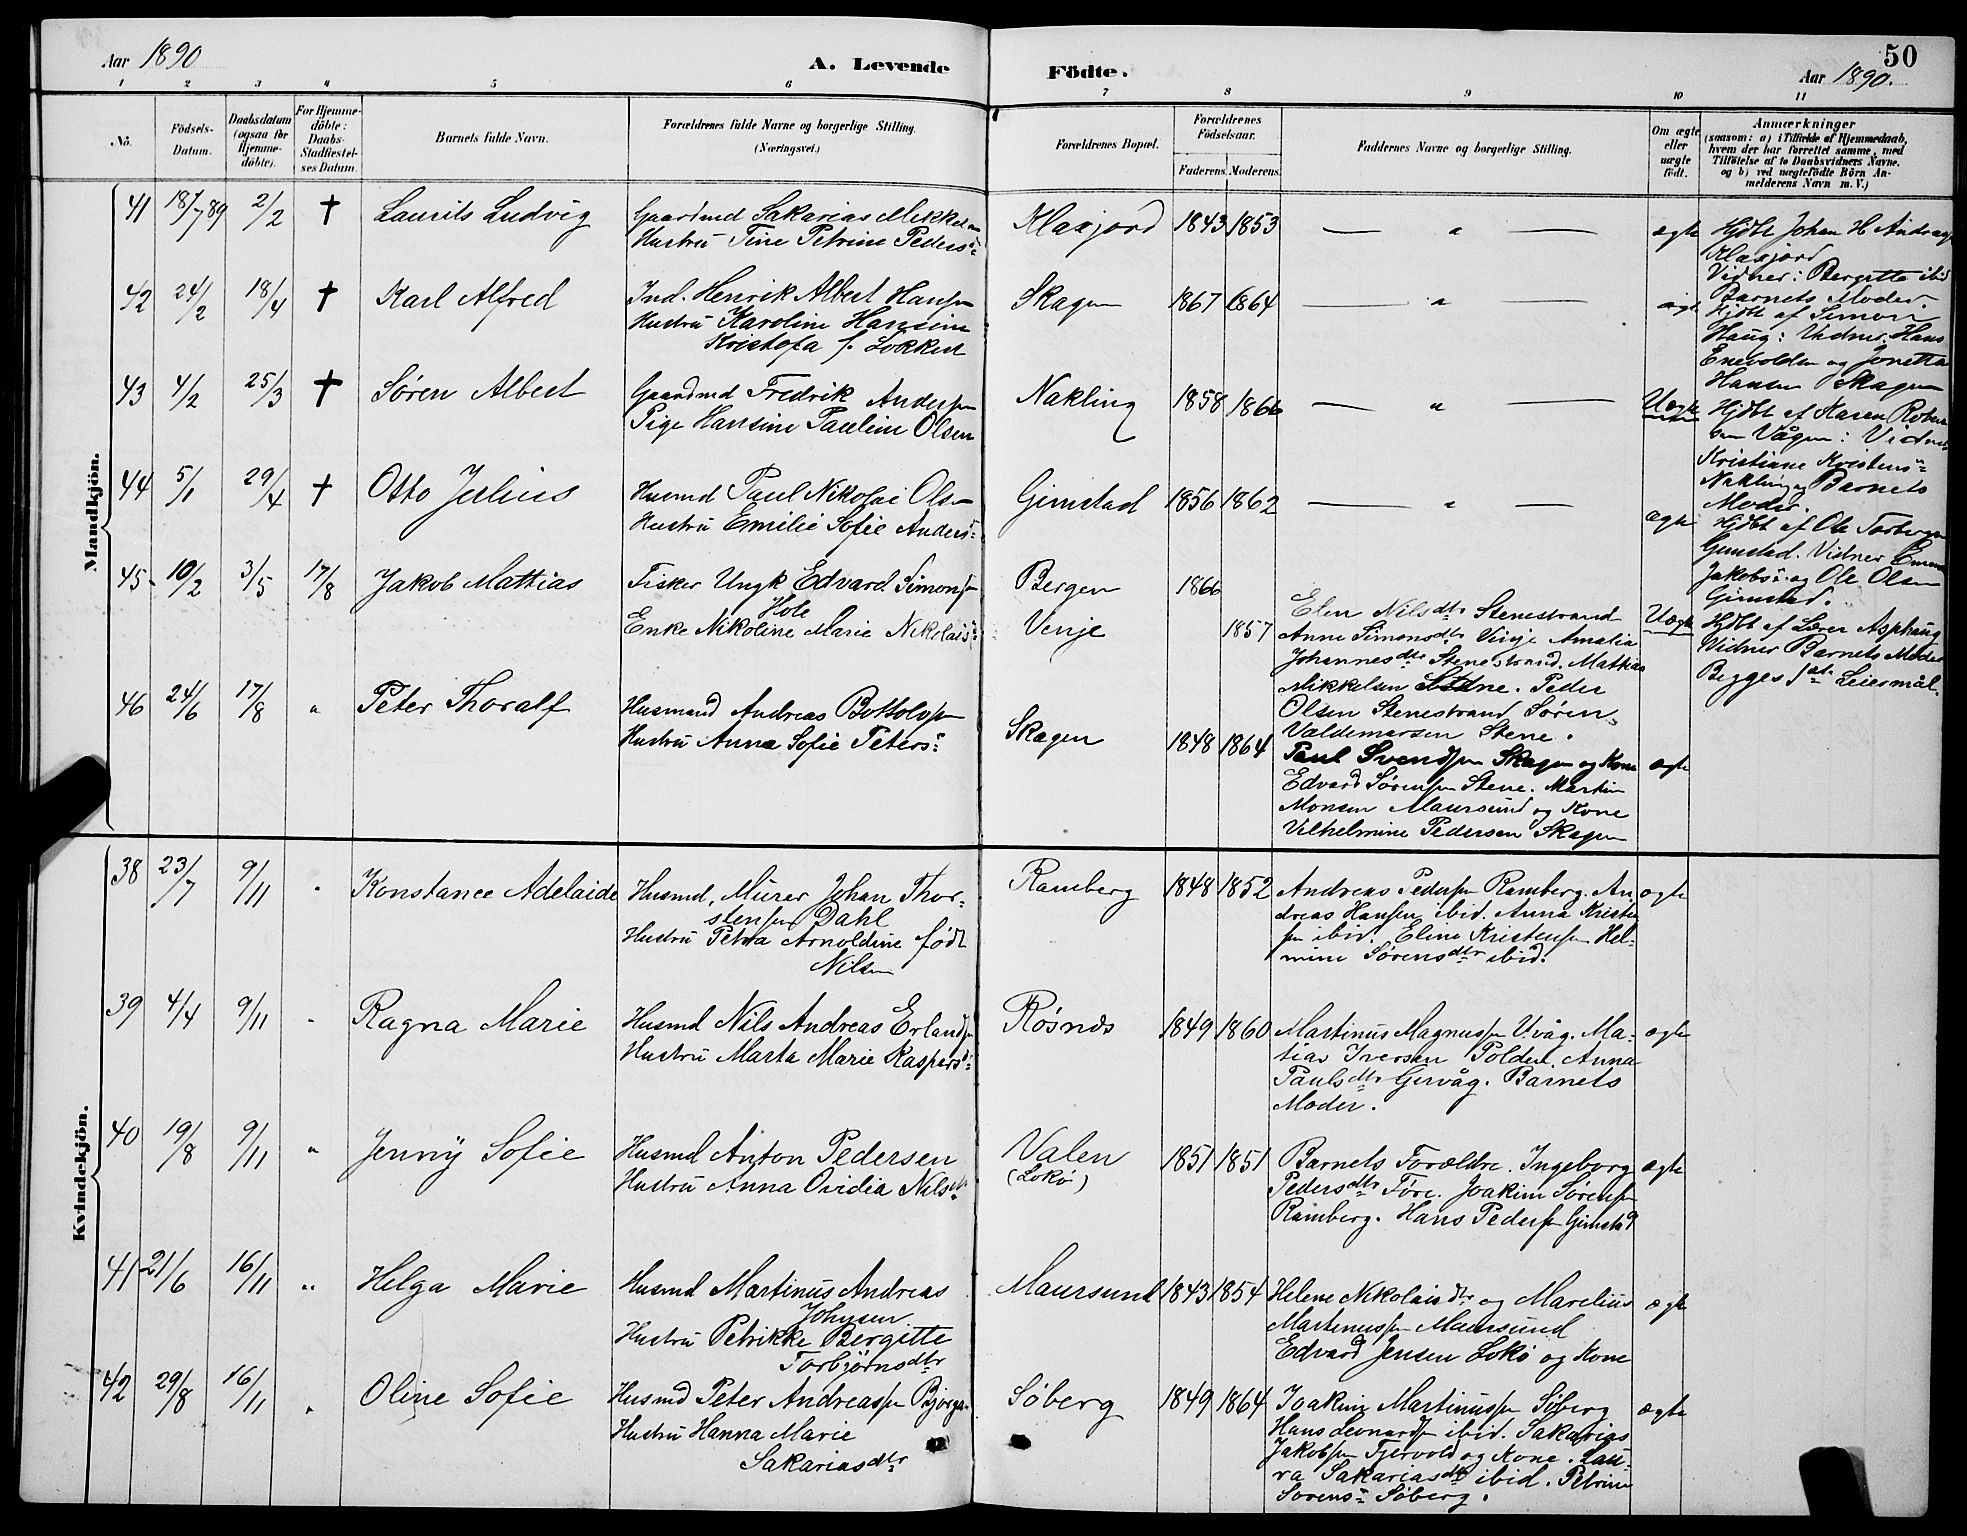 Aar 1890
A. Levende Födte.
Aar 1890.
50
1 2 3 4 5 6 7 8 9 10 11
No.
Födsels-
Datum.
Daabsdatum
(ogsaa for
Hjemme-
döbte).
For Hjemme-
döbte:
Daabs-
Stadfæstel-
ses Datum.
Barnets fulde Navn.
Forældrenes fulde Navne og borgerlige Stilling.
(Næringsvei.)
Forældrenes Bopæl.
Forældrenes
Födselsaar.
Faderens. Moderens.
Faddernes Navne og borgerlige Stilling.
Om ægte
eller
uægte
födt.
Anmærkninger
(saasom: a) i Tilfælde af Hjemmedaab,
hvem der har forrettet samme, med
Tilföielse af to Daabsvidners Navne,
og b) ved uægtefödte Börn An-
melderens Navn m. V.)
Mandkjön.
41 18/7 89 2/2 † Laurits Ludvig
Gaardmd Sakarias Mikkelsen
Hustru Tine Petrine Peders:
Klaxjord 1843 1853 — " — ægte
Hjdbt Johan H Andrags
Klaxjord
Vidner: Bergitte ibid
Barnets Moder.
42 24/2 18/4 † Karl Alfred
Ind. Henrik Albert Hansen
Hustru Karoline Hansine
Kristofa f. Lokken
Skagen 1867 1864 — " — ægte
Hjdbt af Simon
Haug: Vidner: Hans
Enevoldsen og Jonetta
Hansen Skagen
43 4/2 25/3 † Søren Albert
Gaardmd Fredrik Andersen
Pige Hansine Pauline Olsen
Nakling 1858 1866 — " — Uægte
Hjdbt af Karen Robert
sen Vågen: Vidner
Kristiane Kristens:
Nakling og Barnets
Moder.
44 5/1 29/4 † Otto Julius
Husmd Paul Nikolai Olsen
Hustru Emilie Sofie Anders:
Gimstad 1856 1862 — " — ægte
Hjdbt af Ole Torbergsen
Gimstad. Vidner Emma
Jakobs: og Ole Olsen
Gimstad.
45 10/2 3/5 17/8 Jakob Mattias
Fisker Ungk Edvard Simonsen
Hole
Enke Nikoline Marie Nikolais:
Bergen 1866
Vinje 1857
Elen Nilsdtr Stenestrand
Anne Simonsdtr Vinje Amalia
Johannesdtr Stenestrand. Mattias
Mikkelsen Stene. Peder
Olsen Stenestrand Søren
Valdemarsen Stene.
Uægte
Hjdbt af Lærer Asphaug
Vidner Barnets Moder
Begges 1ste Leiermål.
46 24/6 17/8 " Peter Thoralf
Husmand Andreas Bottolvsen
Hustru Anna Sofie Peters:
Skagen 1848 1864
Paul Svendsen Skagen og Kone
Edvard Sørensen Stene. Martin
Monsen Maursund og Kone
Vilhelmine Pedersen Skagen
ægte
Kvindekjön.
38 23/7 9/11 " Konstance Adelaide
Husmd, Murer Johan Thor-
stensen Dahl
Hustru Petra Arnoldine født
Nilsen
Ramberg 1848 1852
Andreas Pedersen Ramberg. An-
dreas Hansen ibid. Anna Kristen
sen ibid. Eline Kristensen Hel-
mine Sørensdtr ibid.
ægte
39 4/4 9/11 " Ragna Marie
Husmd Nils Andreas Erlandsen
Hustru Marta Marie Kaspers:
Røsnæs 1849 1860
Martinus Magnussen Uvåg. Ma-
tias Iversen Polden. Anna
Paulsdtr Gisvåg. Barnets
Moder.
ægte
40 19/8 9/11 " Jenny Sofie
Husmd Anton Pedersen
Hustru Anna Ovidia Nilsdtr
Valen
(Lokø)
1851 1851
Barnets Forældre. Ingeborg
Pedersdtr Føre. Joakim Sørensen
Ramberg. Hans Pedersen Gimstad
ægte
41 21/6 16/11 " Helga Marie
Husmd Martinus Andreas
Johnsen
Hustru Petrikke Bergitte
Torbjørnsdtr
Maursund 1843 1854
Helene Nikolaisdtr og Marelius
Martinussen Maursund
Edvard Jensen Lokø og Kone
ægte
42 29/8 16/11 " Oline Sofie
Husmd Peter Andreassen Bjørge
Hustru Hanna Marie
Sakariasdtr
Søberg 1849 1864
Joakim Martinussen Søberg
Hans Leonardsen ibid. Sakarias
Jakobsen Tjervold og Kone. Lau-
ra Sakariasdtr ibid. Petrine
Sørens: Søberg.
ægte